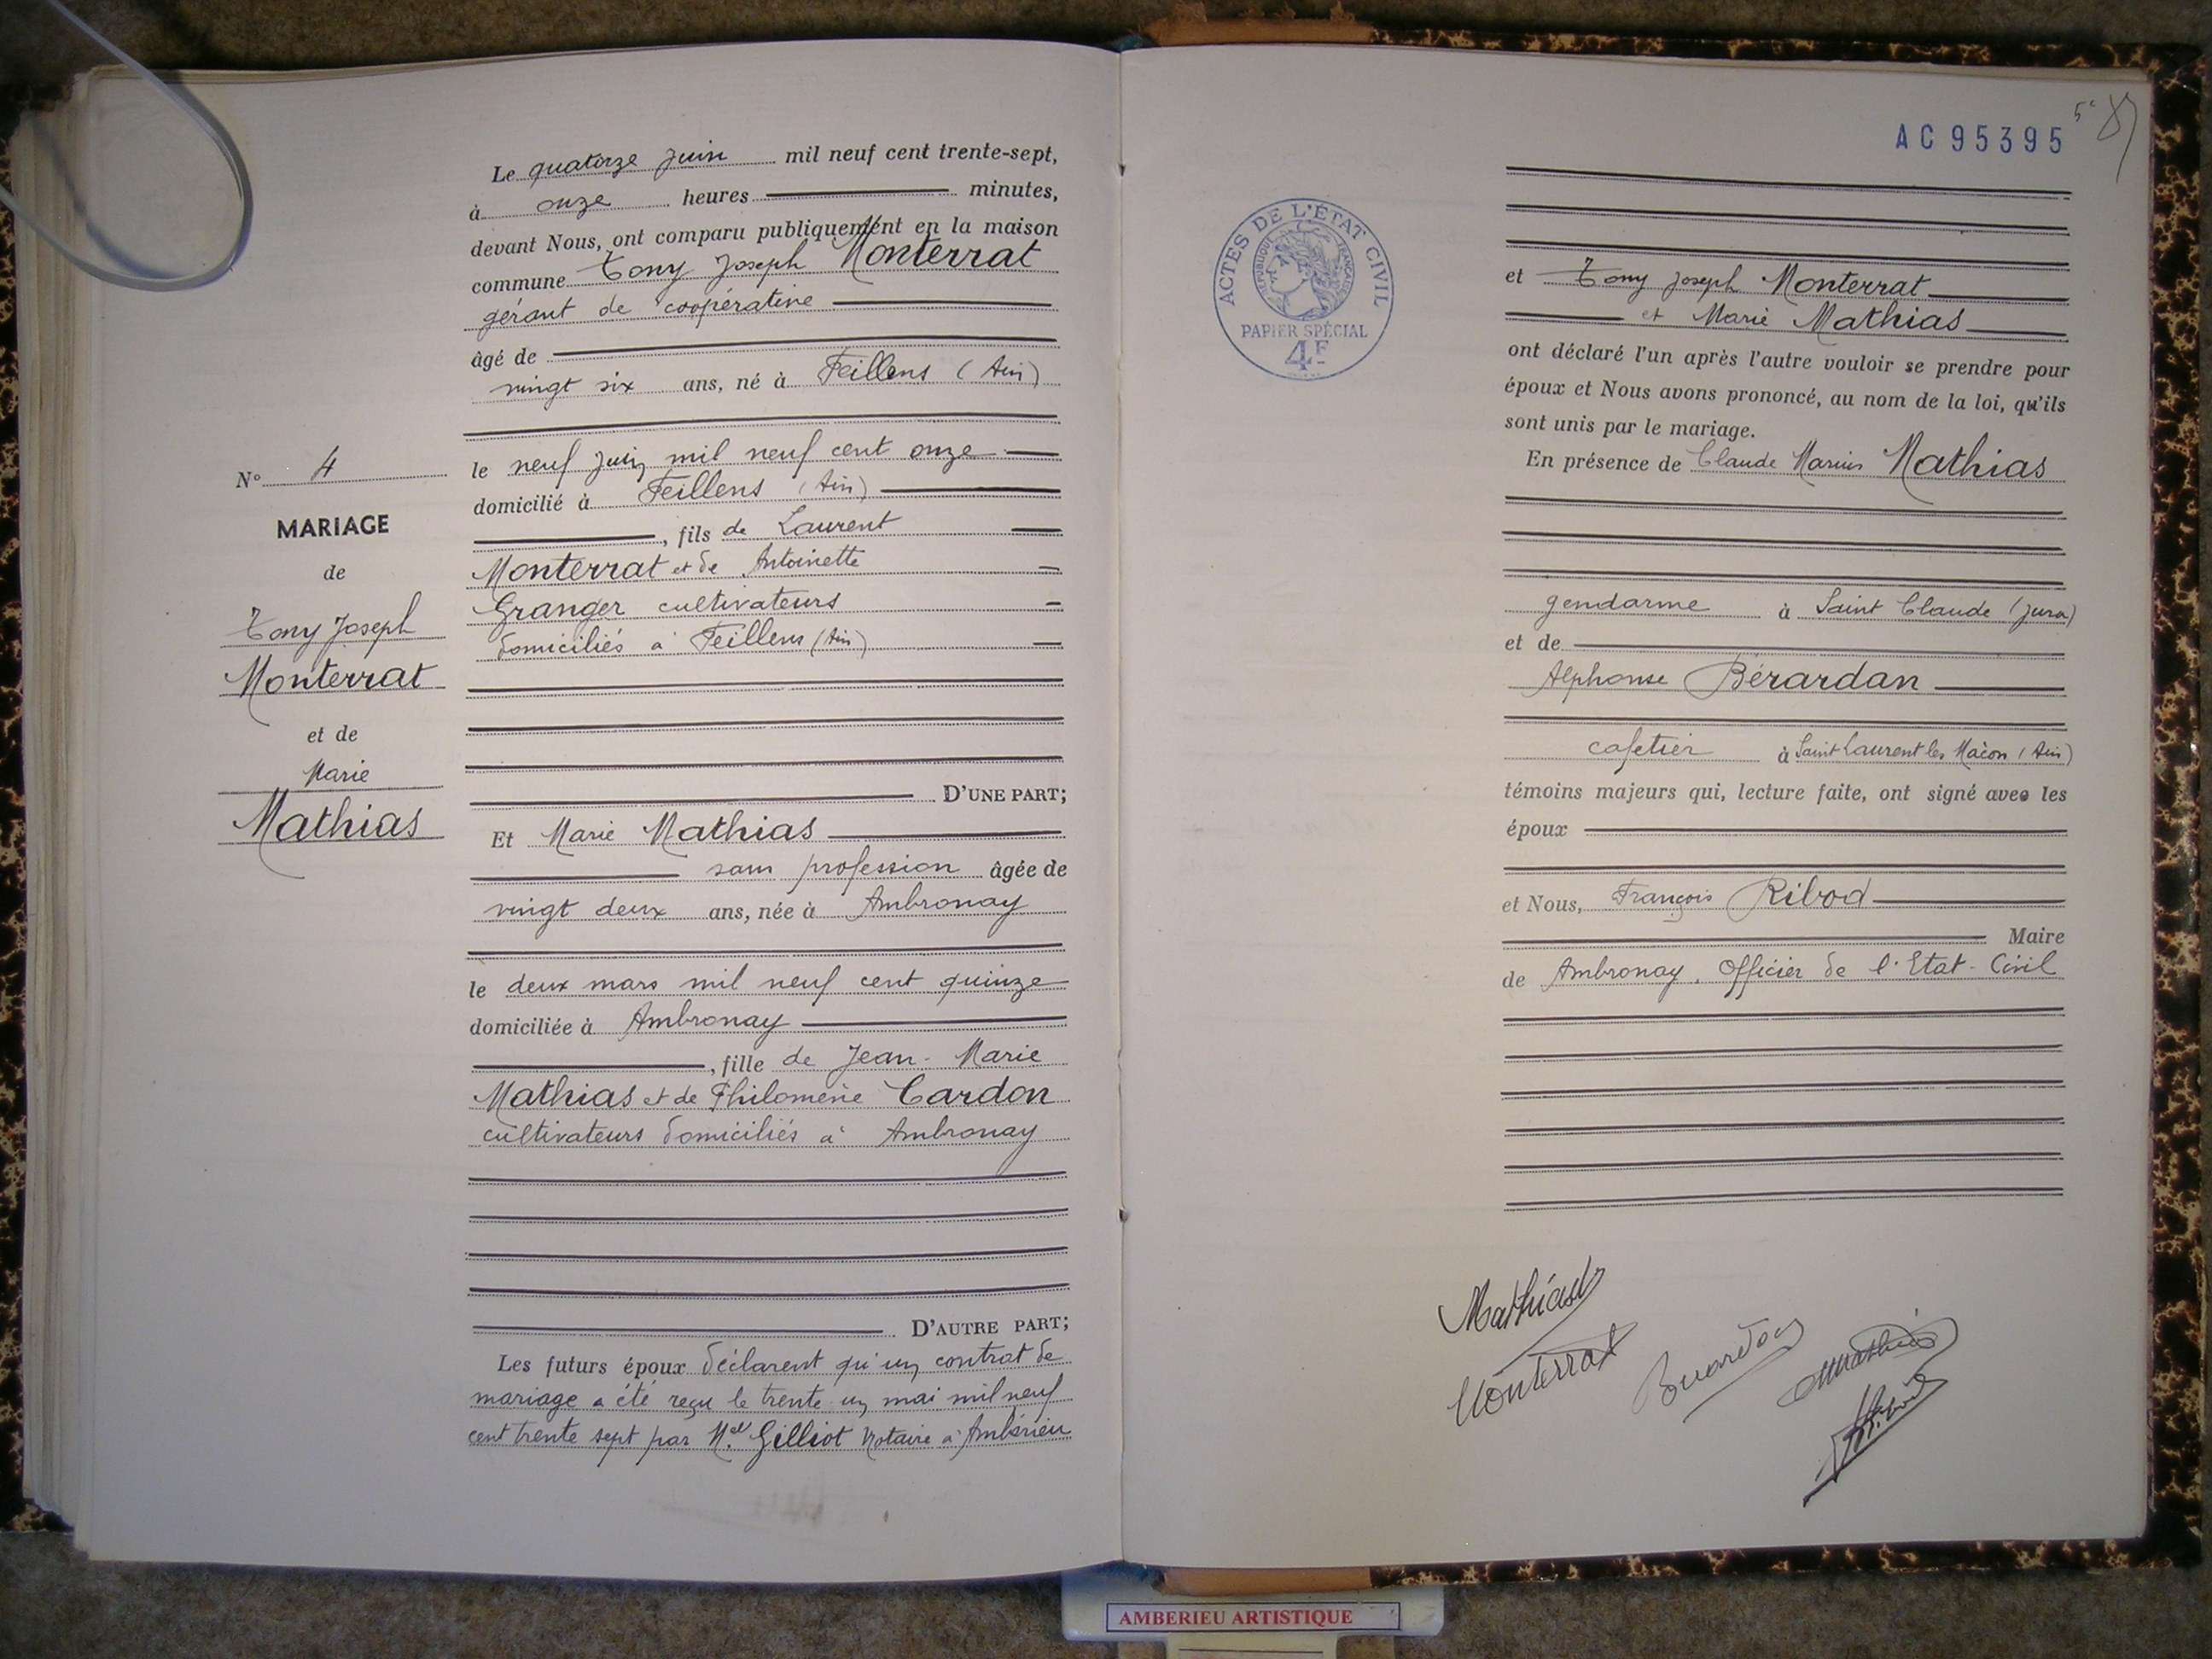 Le quatorze juin mil neuf cent trente-sept,
à onze heures minutes,
devant Nous, ont comparu publiquement en la maison
commune Tony Joseph Monterrat
gérant de coopérative
âgé de
vingt six ans, né à Feillens (Ain)
le neuf juin mil neuf cent onze
domicilié à Feillens (Ain)
, fils de Laurent
Monterrat et de Antoinette
Granger cultivateurs
domiciliés à Feillens (Ain)
D'UNE PART;
Et Marie Mathias
sans profession âgée de
vingt deux ans, née à Ambronay
le deux mars mil neuf cent quinze
domiciliée à Ambronay
, fille de Jean-Marie
Mathias et de Philomène Cardon
cultivateurs domiciliés à Ambronay
D'AUTRE PART;
Les futurs époux déclarent qu'un contrat de
mariage a été reçu le trente un mai mil neuf
cent trente sept par Gilliot Notaire à Ambérieu
N° 4
MARIAGE
de
Tony Joseph
Monterrat
et de
Marie
Mathias
AC 95395
ACTES DE L'ÉTAT CIVIL
RÉPUBLIQUE FRANÇAISE
PAPIER SPÉCIAL
4F
et Tony Joseph Monterrat
et Marie Mathias
ont déclaré l'un après l'autre vouloir se prendre pour
époux et Nous avons prononcé, au nom de la loi, qu'ils
sont unis par le mariage.
En présence de Claude Marius Mathias
gendarme à Saint Claude (Jura)
et de
Alphonse Bérardan
cafetier à Saint Laurent les Mâcon (Ain)
témoins majeurs qui, lecture faite, ont signé avec les
époux
et Nous, François Ribod
Maire
de Ambronay. Officier de l'Etat-Civil
Mathias
Monterrat
Mathias
AMBERIEU ARTISTIQUE